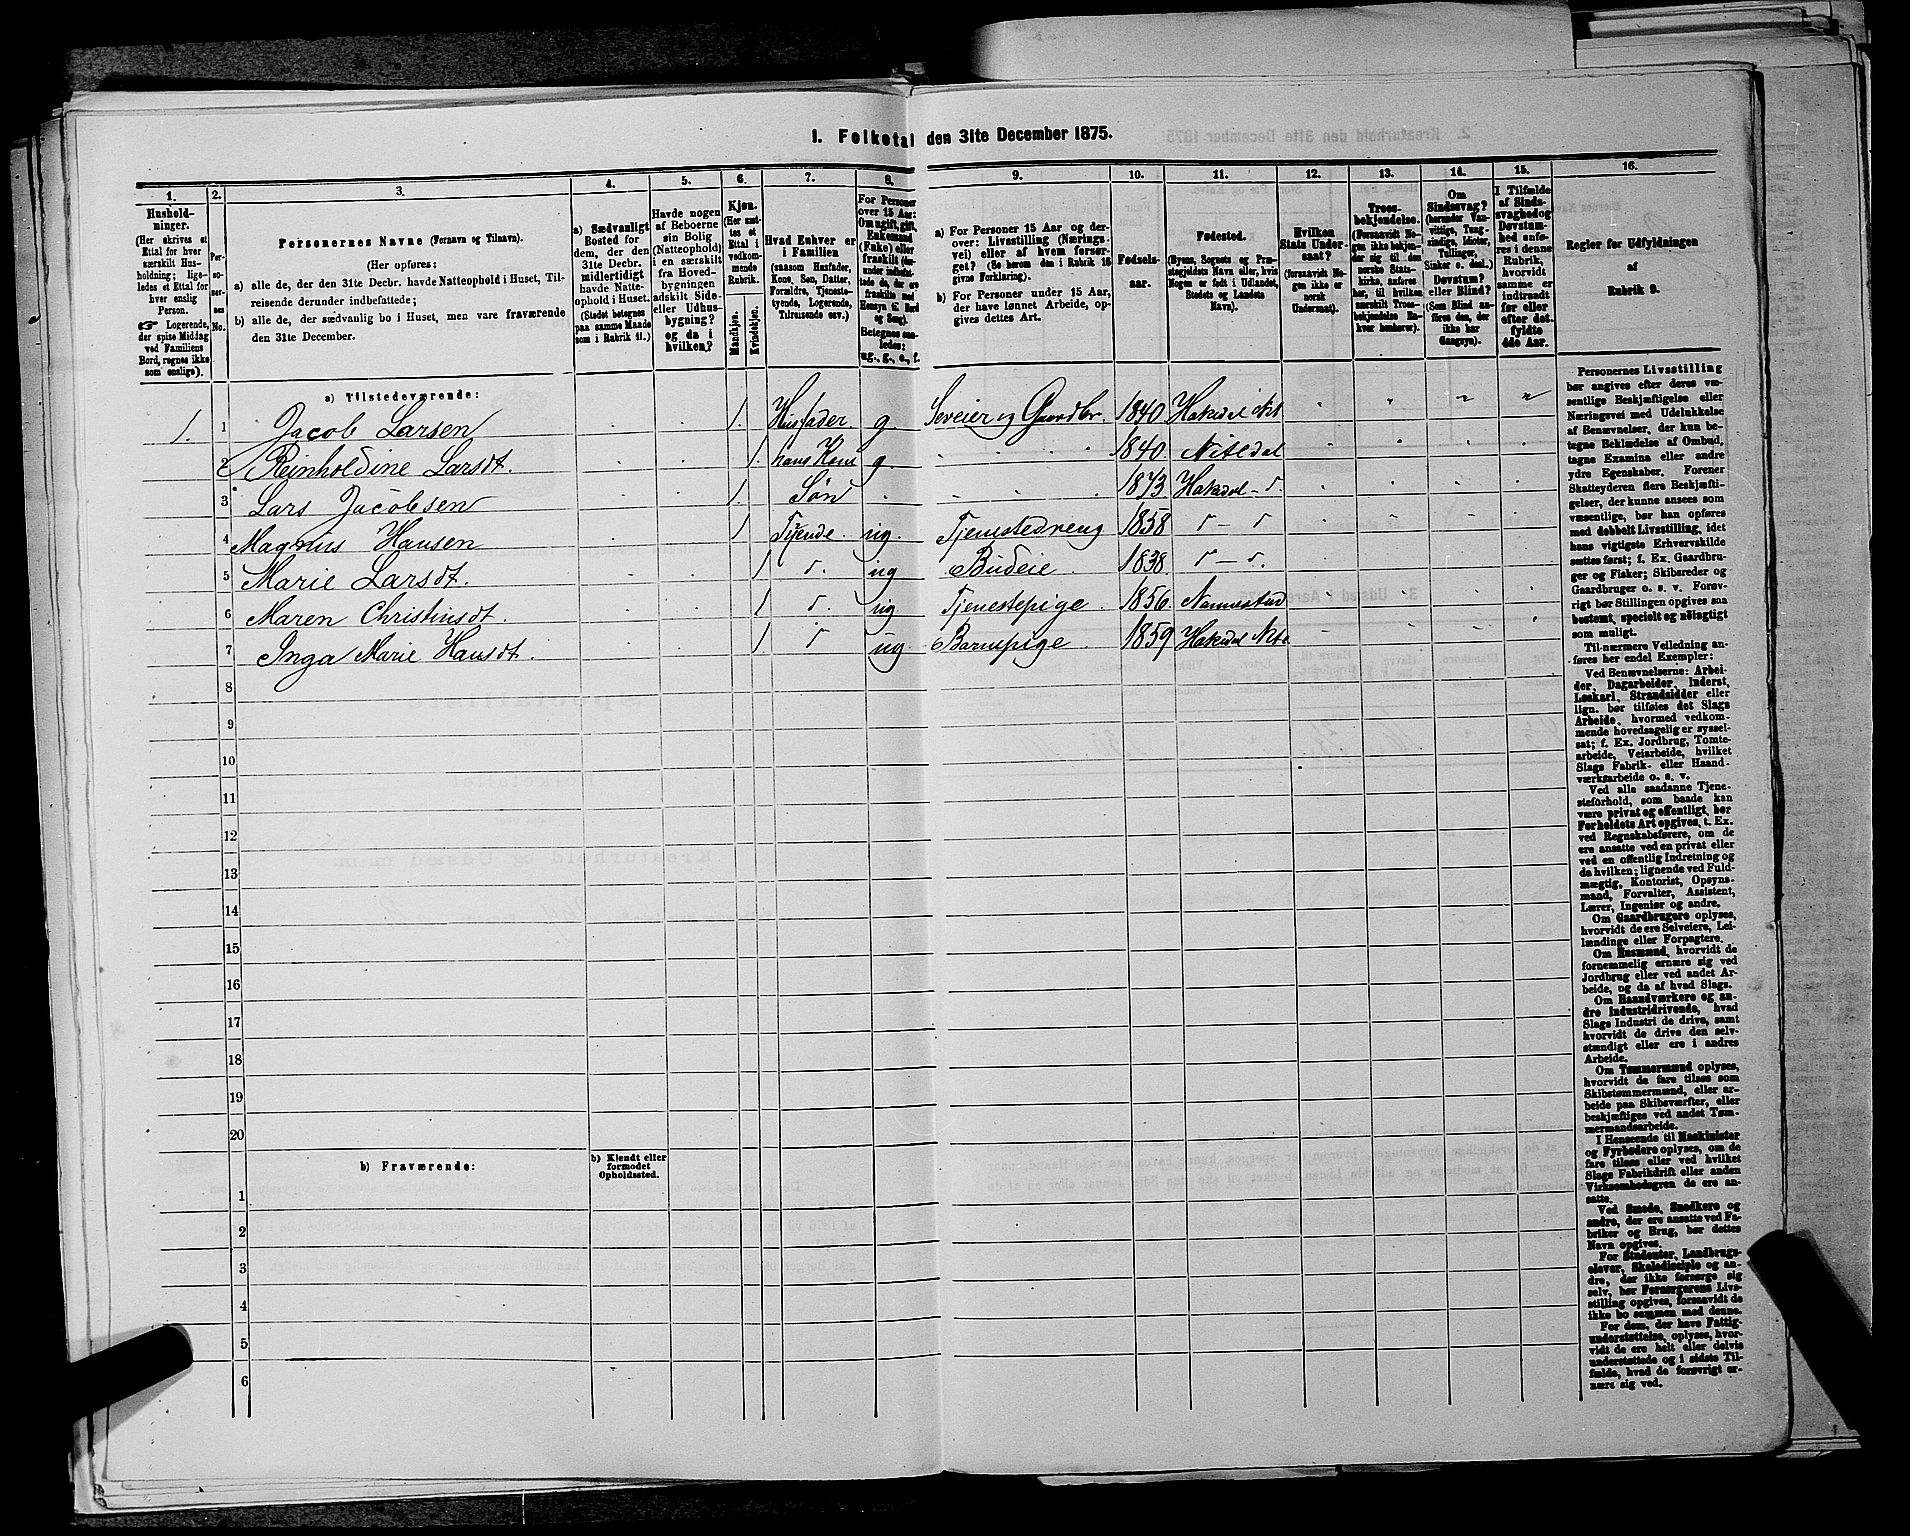 1. Folketal den 31te December 1875.
1. 2. 3. 4. 5. 6. 7. 8. 9. 10. 11. 12. 13. 14. 15. 16.
Hushold-
ninger.
(Her skrives et
Ettal for hver
særskilt Hus-
holdning; lige-
ledes et Ettal for
hver enslig
Person.
☞ Logerende,
der spise Middag
ved Familiens
Bord, regnes ikke
som enslige).
Per-
so-
ner-
nes
No.
Personernes Navne (Fornavn og Tilnavn).
(Her opføres:
a) alle de, der den 31te Decbr. havde Natteophold i Huset, Til-
reisende derunder indbefattede;
b) alle de, der sædvanlig bo i Huset, men vare fraværende
den 31te December.
a) Sædvanligt
Bosted for
dem, der den
31te Decbr.
midlertidigt
havde Natte-
ophold i Huset.
(Stedet betegnes
paa samme Maade
som i Rubrik 11.)
Havde nogen
af Beboerne
sin Bolig
(Natteophold)
i en særskilt
fra Hoved-
bygningen
adskilt Side-
eller Udhus-
bygning?
og da i
hvilken?
Kjøn.
(Her sæt-
tes et
Ettal i
vedkom-
mende
Rubrik.
Mandkjøn.
Kvindekjøn.
Hvad Enhver er
i Familien
(saasom Husfader,
Kone, Søn, Datter,
Forældre, Tjeneste-
tyende, Logerende,
Tilreisende osv.)
For Personer
over 15 Aar:
Om ugift, gift,
Enkemand
(Enke) eller
fraskilt (der-
under indbefat-
tede de, der ere
fraskilte med
Hensyn til Bord
og Seng).
Betegnes saa-
ledes:
ug., g., e., f.
a) For Personer 15 Aar og der-
over: Livsstilling (Nærings-
vei) eller af hvem forsør-
get? (Se herom den i Rubrik 16
givne Forklaring).
b) For Personer under 15 Aar,
der have lønnet Arbeide, op-
gives dettes Art.
Fødsels-
aar.
Fødested.
(Byens, Sognets og Præ-
stegjeldets Navn eller, hvis
Nogen er født i Udlandet,
Stedets og Landets
Navn).
Hvilken
Stats Under-
saat?
(forsaavidt No-
gen ikke er
norsk
Undersaat).
Troes-
bekjendelse.
(Forsaavidt No-
gen ikke bekjen-
der sig til den
norske Stats-
kirke, anføres
her, til hvilken
særskilt Troes-
bekjendelse En-
hver henhører).
Om
Sindssvag?
(herunder Van-
vittige, Tung-
sindige, Idioter,
Tullinger,
Sinker o. desl.)
Døvstum?
eller Blind?
(Som Blind an-
føres den, der
ikke har
Gangsyn).
I Tilfælde
af Sinds-
svaghed og
Døvstum-
hed anfø-
res i denne
Rubrik,
hvorvidt
samme er
indtraadt
før eller
efter det
fyldte
4de Aar.
Regler for Udfyldningen
af
Rubrik 9.
a) Tilstedeværende:
1. 1 Jacob Larsen 1. Husfader g. Seveier og Gaardbr. 1840 Hakedal Nit
2 Reinholdine Larsdt. 1. hans Kone g. 1840. Nitedal
3 Lars Jacobsen 1. Søn 1873 Hakedal
4 Magnus Hansen 1 Tyende ug. Tjenestedreng 1858
5 Marie Larsdt. 1 ug Budeie 1838
6 Maren Christiansdt. 1 ug Tjenestepige 1856. Nannestad
7 Inga Marie Hansdt. 1 ug Barnepige 1859 Hakedal Nite
8
9
10
11
12
13
14
15
16
17
18
19
20
b) Fraværende:
b) Kjendt eller
formodet
Opholdssted.
1
2
3
4
5
6
Personernes Livsstilling
bør angives efter deres væ-
sentlige Beskjæftigelse eller
Næringsvei med Udelukkelse
af Benævnelser, der kun be-
tegne Beklædelse af Ombud,
tagne Examina eller andre
ydre Egenskaber. Forener
Skatteyderen flere Beskjæfti-
gelser, der kunne ansees som
væsentlige, bør han opføres
med dobbelt Livsstilling, idet
hans vigtigste Erhvervskilde
sættes først; f. Ex. Gaardbru-
ger og Fisker; Skibsreder og
Gaardbruger o. s. v. Forøv-
rigt bør Stillingen opgives saa
bestemt, specielt og nøiagtigt
som muligt.
Til nærmere Veiledning an-
føres her endel Exempler:
Ved Benævnelserne: Arbei-
der, Dagarbeider, Inderst,
Løskarl, Strandsidder eller
lign. bør tilføies det Slags
Arbeide, hvormed vedkom-
mende hovedsagelig er syssel-
sat; f. Ex. Jordbrug, Tomte-
arbeide, Veiarbeide, hvilket
Slags Fabrik- eller Haand-
værksarbeide o. s. v.
Ved alle saadanne Tjene-
steforhold, som baade kan
være privat og offentligt, bør
Forholdets Art opgives, t. Ex.
ved Regnskabsførere, om de
ere ansatte ved en privat eller
ved en offentlig Indretning og
da hvilken; lignende ved Fuld-
mægtig, Kontorist, Opsyns-
mand, Forvalter, Assistent,
Lærer, Ingeniør og andre.
Om Gaardbrugere oplyses,
hvorvidt de ere Selveiere, Lei-
lændinge eller Forpagtere.
Om Husmænd, hvorvidt de
fornemmelig ernære sig ved
Jordbrug eller ved andet Ar-
beide, og da af hvad Slags.
Om Haandværkere og an-
dre Industridrivende, hvad
Slags Industri de drive, samt
hvorvidt de drive den selv-
stændigt eller ere i andres
Arbeide.
Om Tømmermænd oplyses,
hvorvidt de fare tilsøs som
Skibstømmermænd, eller ar-
beide paa Skibsværfter, eller
beskjæftiges ved andet Tøm-
mermandsarbeide.
I Henseende til Maskinister
og Fyrbødere oplyses, om de
fare tilsøs eller ved hvilket
Slags Fabrikdrift eller anden
Virksomhedsgren de ere an-
satte.
Ved Smede, Snedkere og
andre, der ere ansatte ved Fa-
briker og Brug, bør dettes
Navn opgives.
For Studenter, Landbrugs-
elever, Skoledisciple og an-
dre, der ikke forsørge sig
selv, bør Forsørgerens Livs-
stilling opgives, forsaavidt de
ikke bo sammen med denne.
For dem, der have Fattig-
understøttelse, oplyses, hvor-
vidt de ere helt eller delvis
understøttede og i sidste Til-
fælde, hvad de forøvrigt er-
nære sig ved.